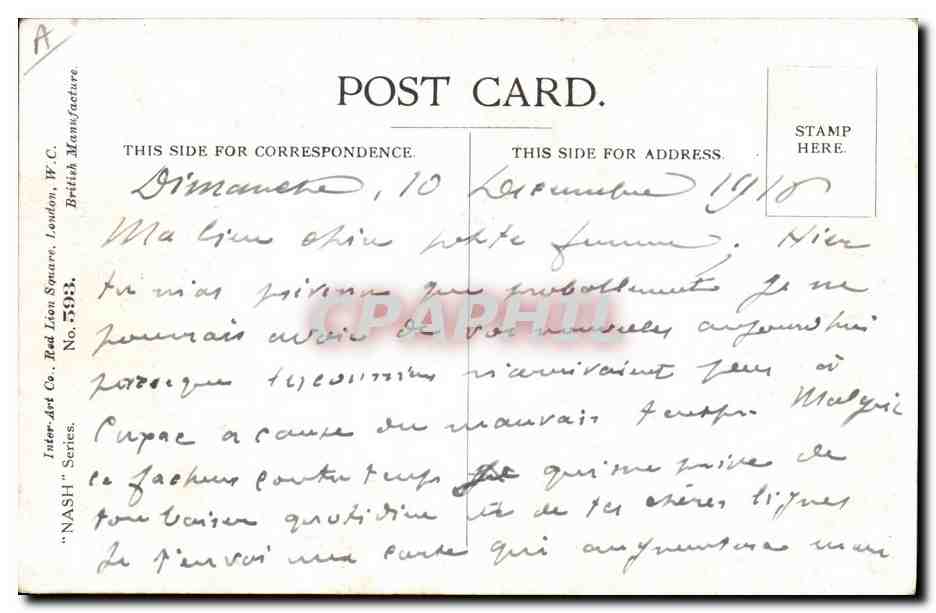 A
POST CARD.
THIS SIDE FOR CORRESPONDENCE.
THIS SIDE FOR ADDRESS.
STAMP
HERE.
Inter-Art Co., Red Lion Square, London, W.C.
British Manufacture.
"NASH" Series.
No. 593.
CPAPHIL
Dimanche, 10 Decembre 1916
Ma bien chère petite femme. Hier
tu m'as que probablement je ne
pourrais avoir de vos nouvelles aujourd'hui
n'arrivaient pas à
a cause du mauvais temps. Malgré
ce facheux contretemps qui me prive de
ton baiser quotidien et de tes chères lignes
Je t'envoi une carte qui augmentera mon